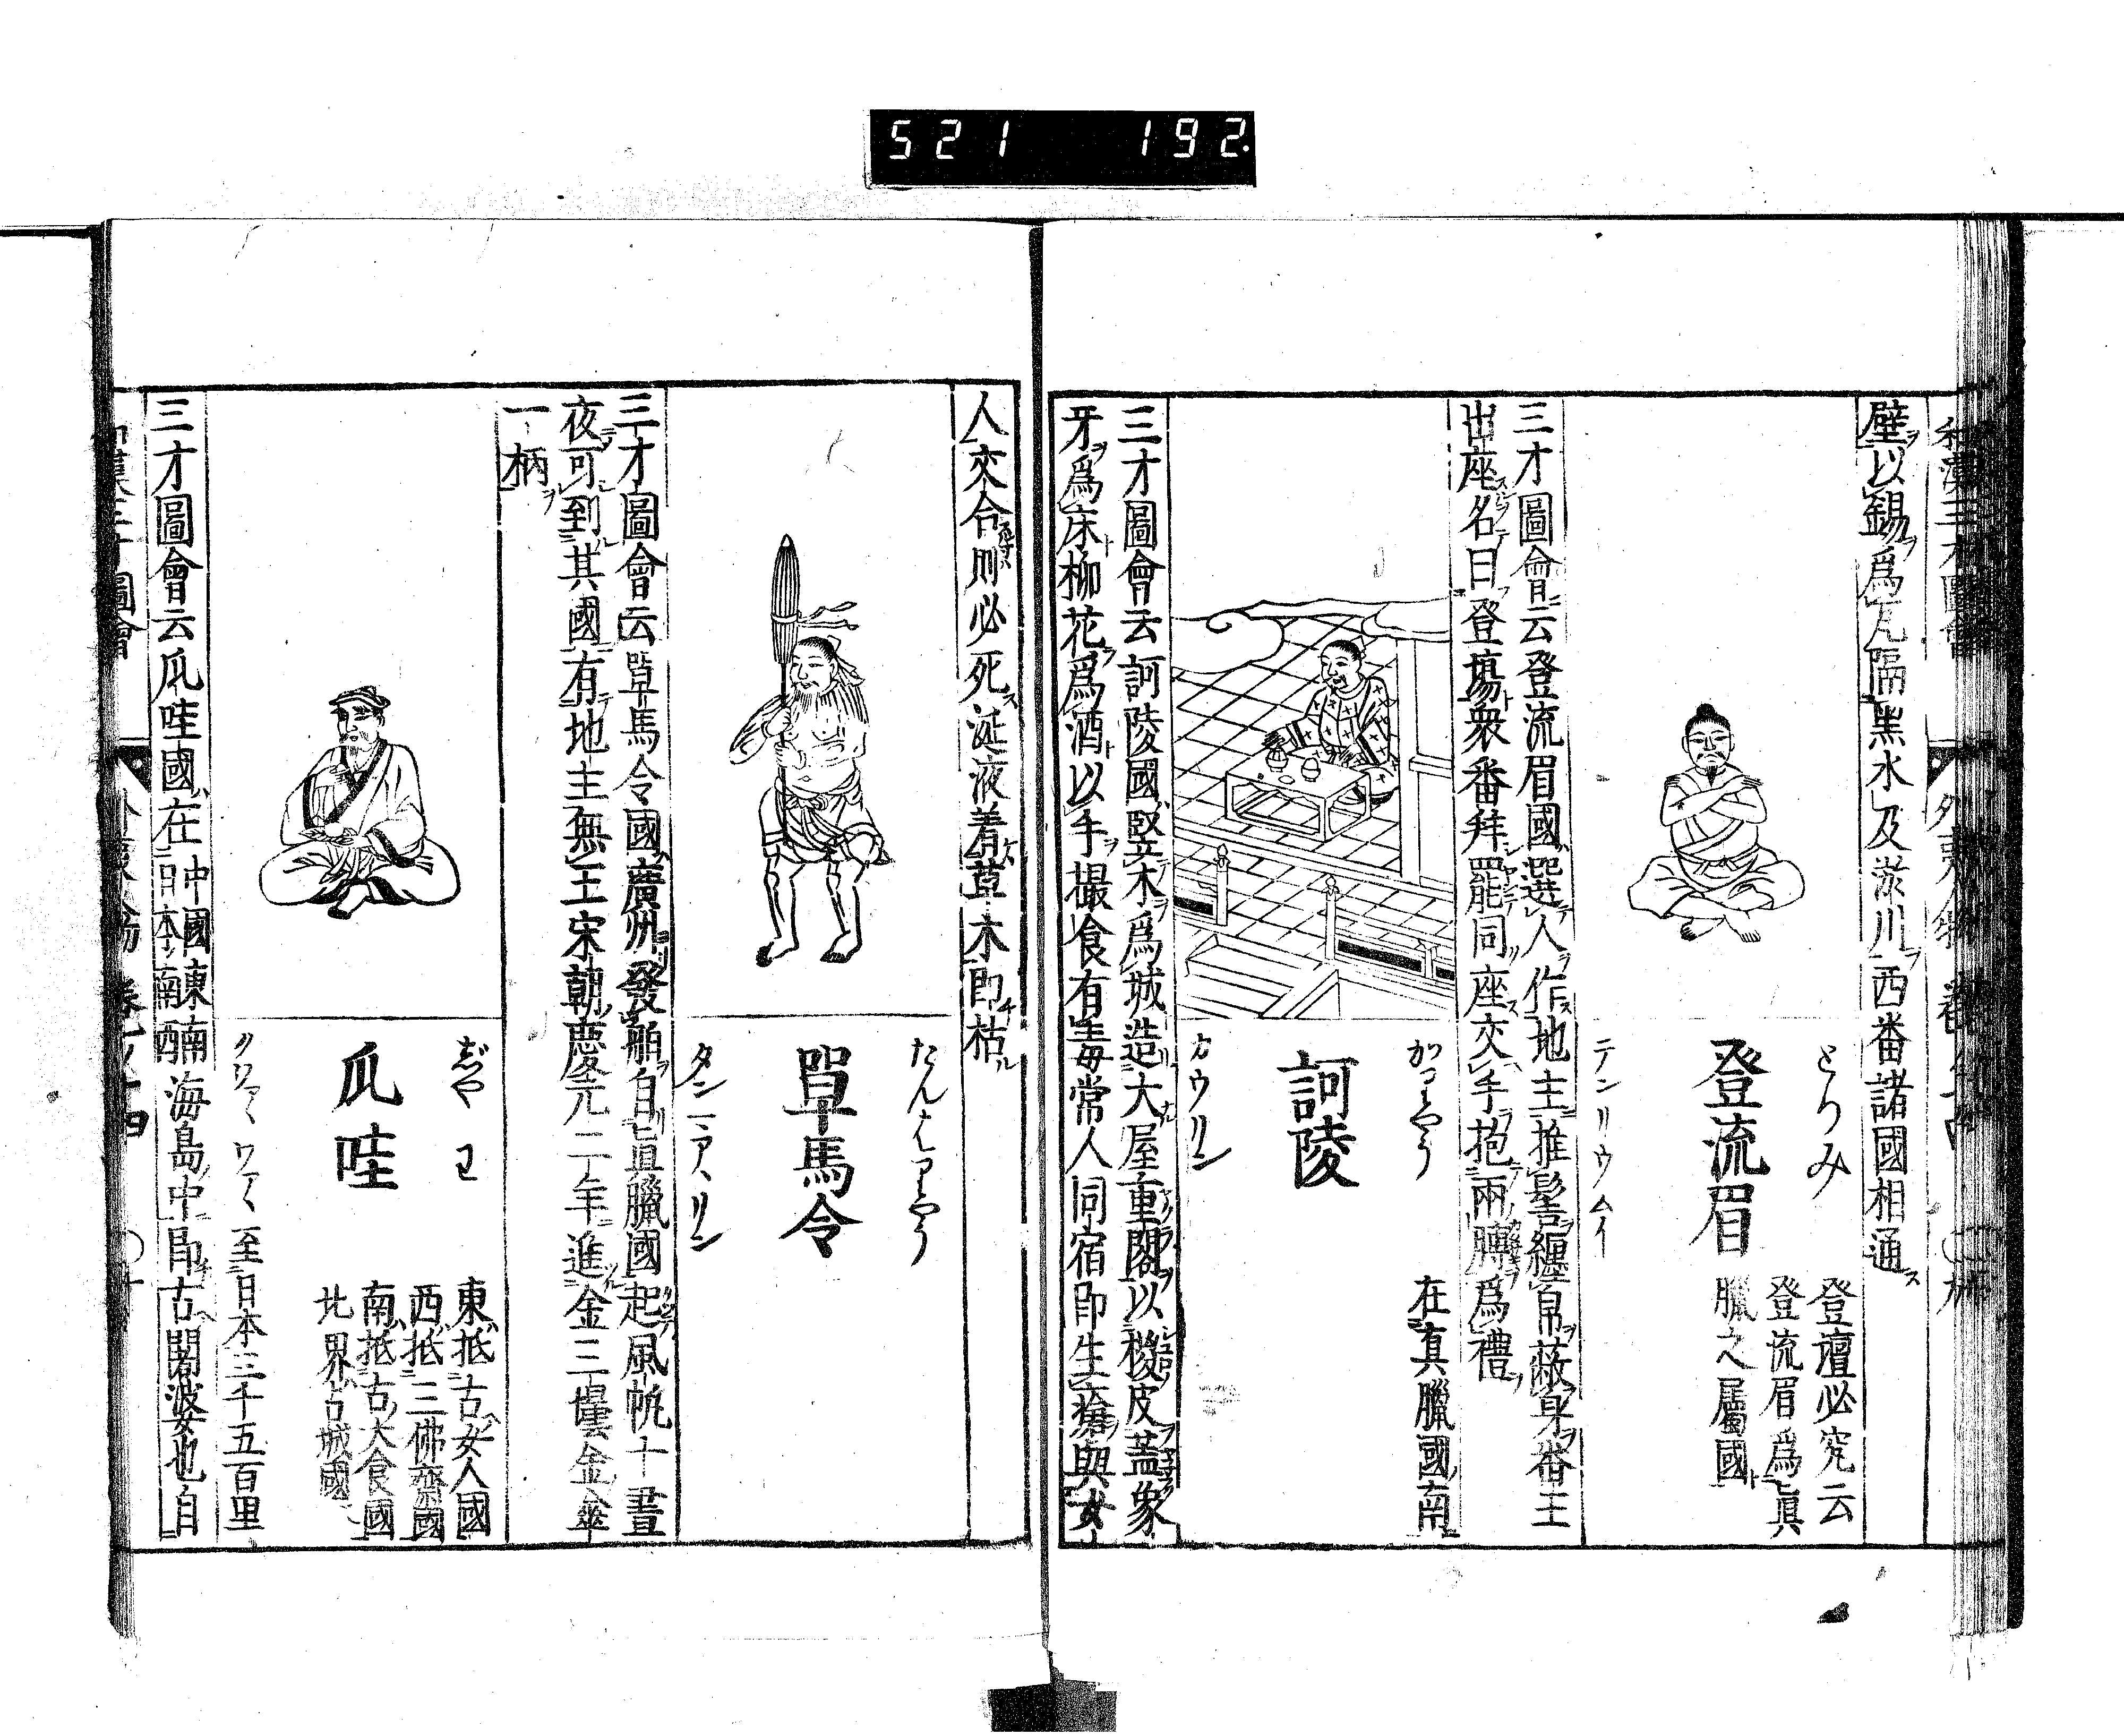 521 192.
和漢三才圖會
外夷人物 卷第十四
壁以錫爲瓦隔黑水及淤川西番諸國相通
とうりみ
登流眉
登壇必究云
登流眉爲眞
臘之屬國
テンリウムイ
三才圖會云登流眉國選人作地主推髻纏帛蔽身番王
出座名曰登塲衆番拜罷同座交手抱兩膊爲禮
訶陵
在真臘國南
カウリン
三才圖會云訶陵國竪木爲城造大屋重閣以椶皮蓋象
牙爲床柳花爲酒以手撮食有毒常人同宿卽生瘡與女
人交合則必死涎液着草木卽枯
單馬令
三才圖會云單馬令國廣州發舶自眞臘國起風帆十晝
夜可到其國有地主無王宋朝慶元二年進金三壜金傘
一柄
ぢや わ
瓜哇
東抵古女人國
西抵三佛齋國
南抵古大食國
北界占城國
至日本三千五百里
三才圖會云瓜哇國在中國東南
日本南酉南
海島中卽古闍婆也自
和漢三才圖會